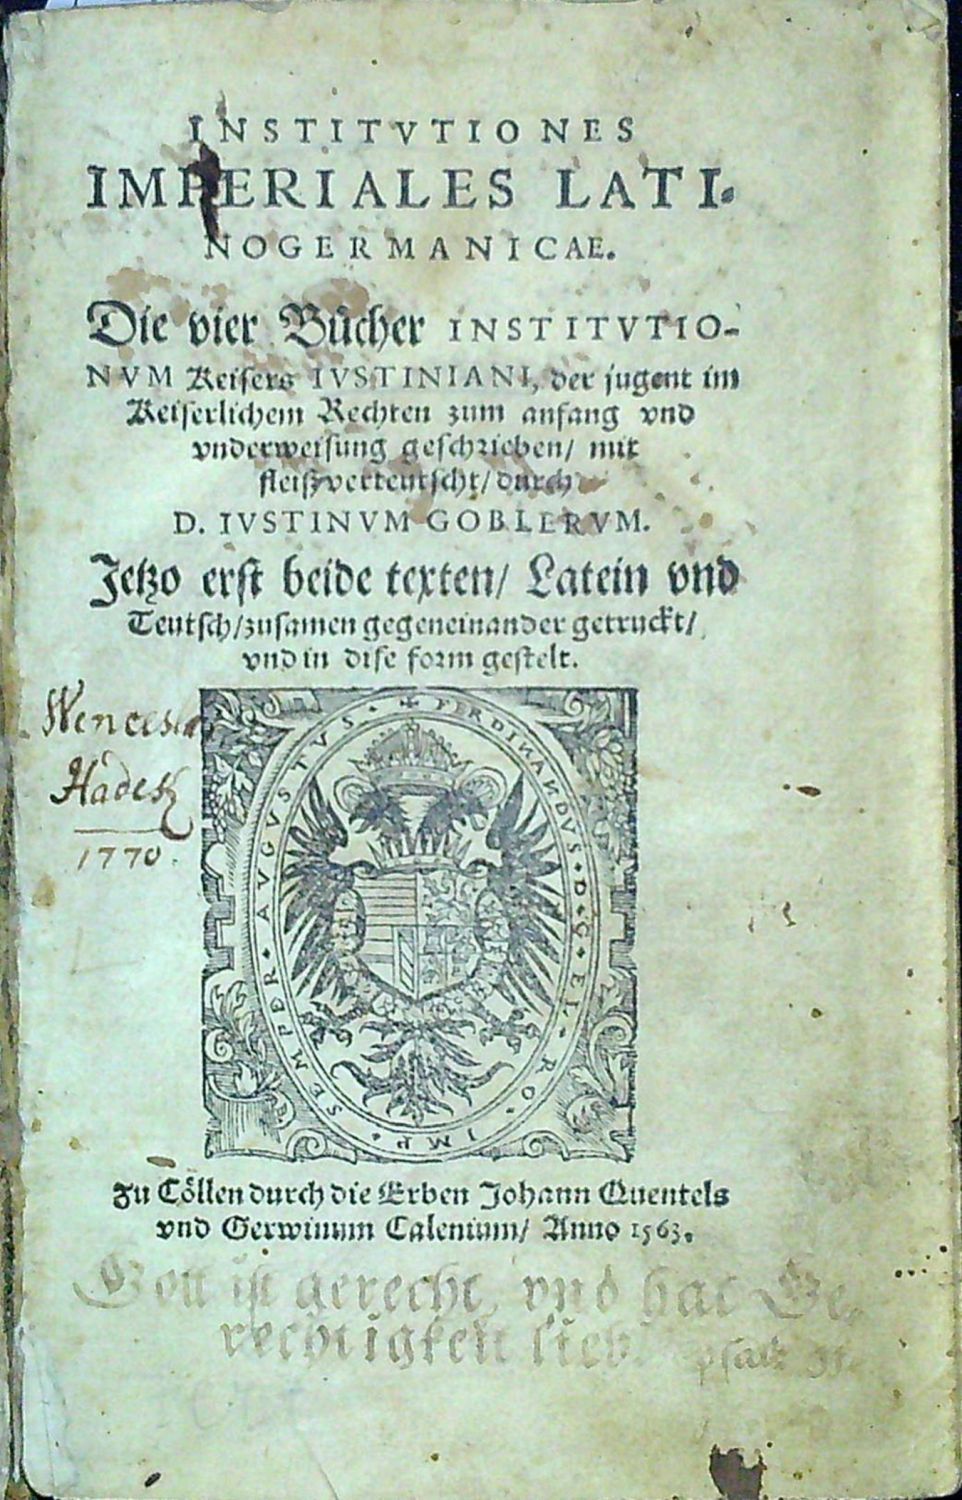 INSTITVTIONES
IMPERIALES LATI-
NOGERMANICAE.
Die vier Bücher INSTITVTIO-
NVM Keisers IVSTINIANI, der jugent im
Keiserlichem Rechten zum anfang vnd
vnderweisung geschrieben/ mit
fleiß verteutscht/ durch
D. IVSTINVM GOBLERVM.
Jetzo erst beide texten/ Latein vnd
Teutsch/ zusamen gegeneinander getruckt/
vnd in dise form gestelt.
Hadek
1770.
✠ FERDINANDVS • D • G • EL • RO • IMP • SEMPER • AVGVSTVS •
Zu Cöllen durch die Erben Johann Quentels
vnd Gerwinum Calenium/ Anno 1563.
Gott ist gerecht, vnd hat Ge-
rechtigkeit lieb. psal: